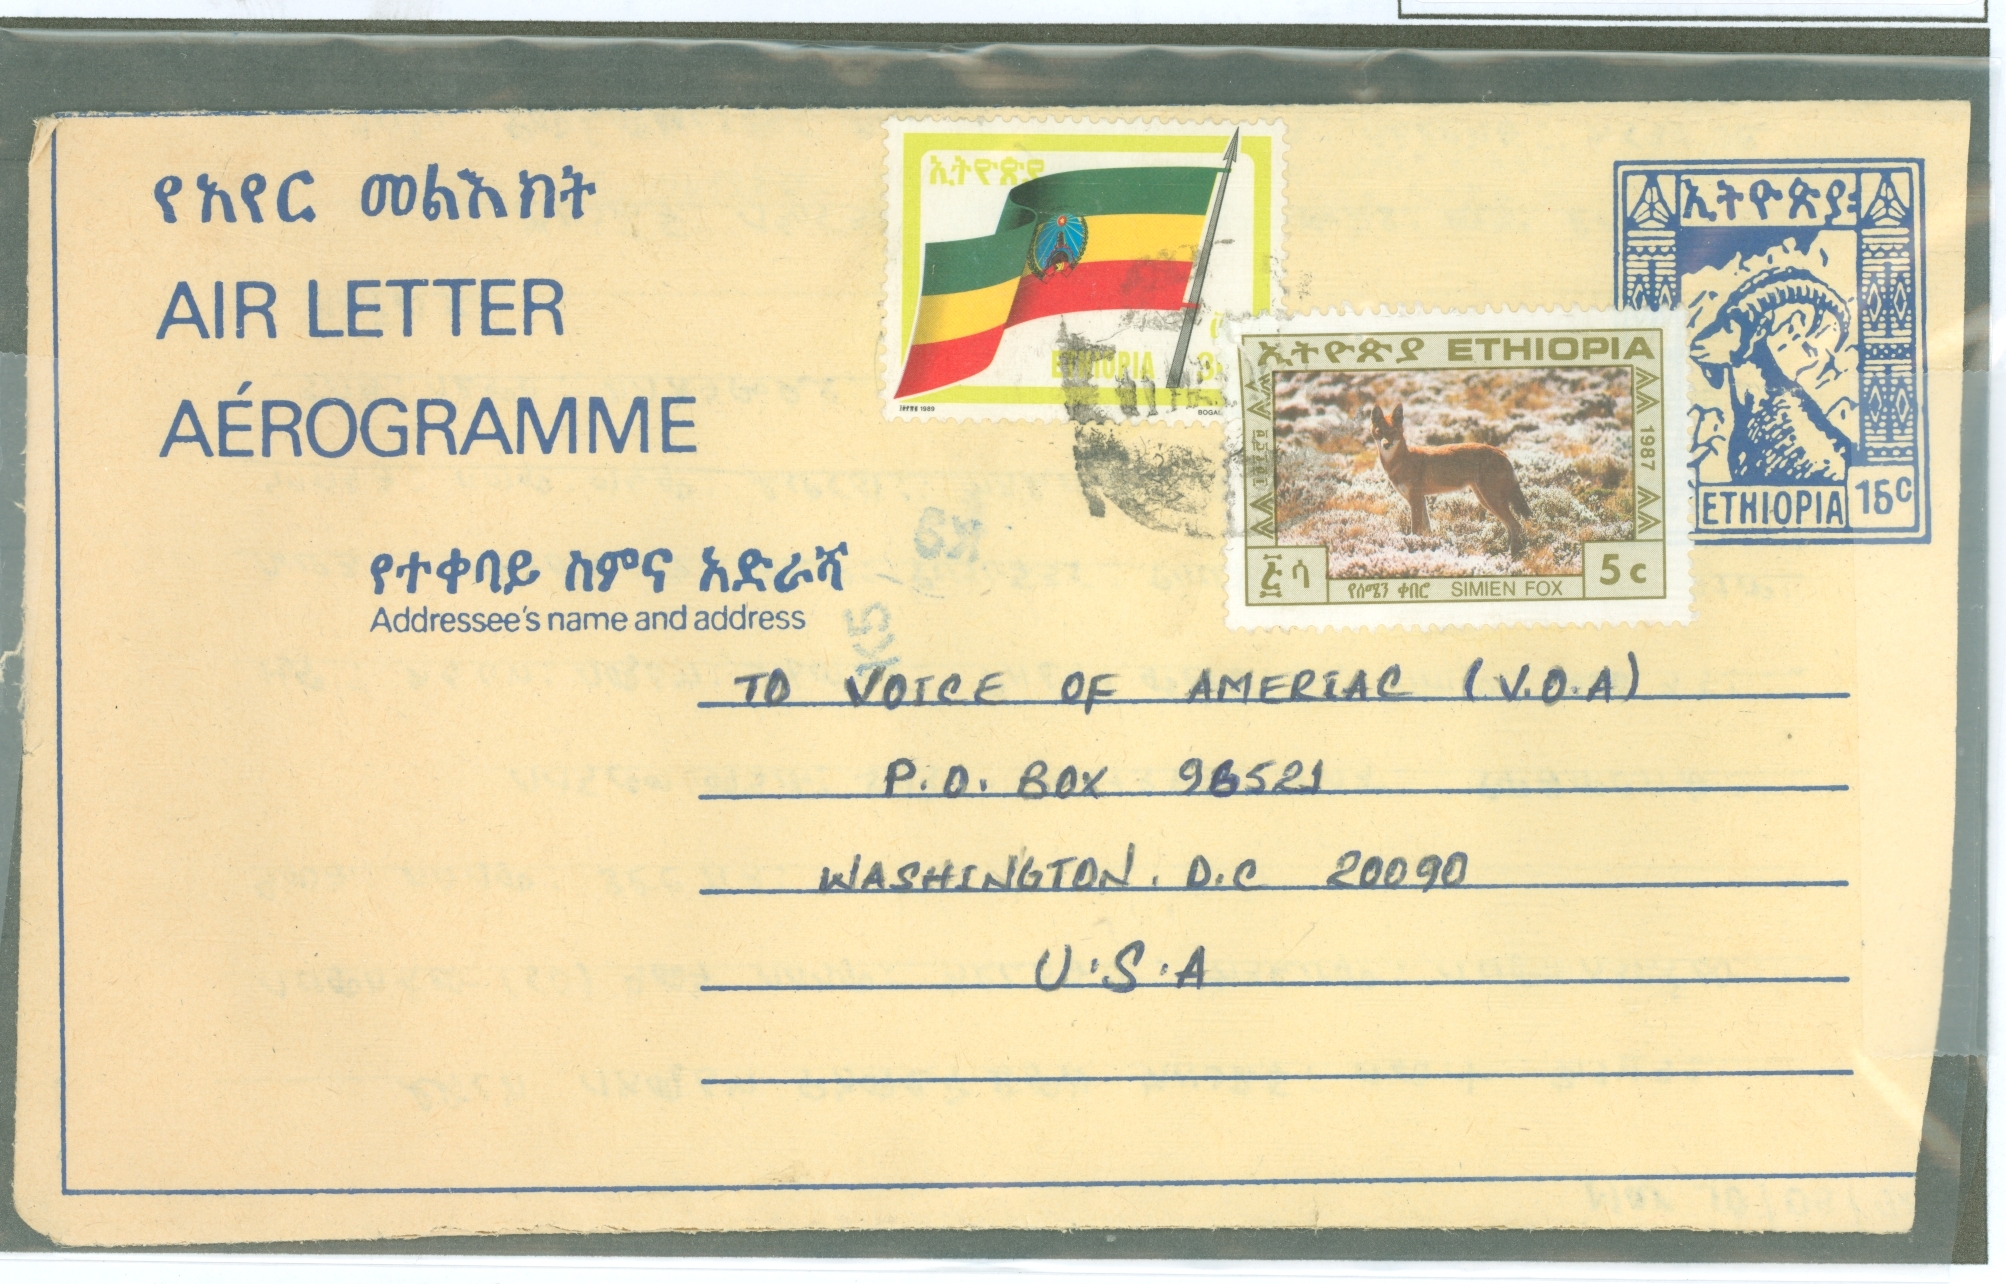 የአየር መልእክት
AIR LETTER
AÉROGRAMME
ኢትዮጵያ
ETHIOPIA
1989
ኢትዮጵያ፡
ETHIOPIA
15c
ኢትዮጵያ ETHIOPIA
1987
ሳ
የሰሜን ቀበሮ SIMIEN FOX
5c
የተቀባይ ስምና አድራሻ
Addressee's name and address
TO VOICE OF AMERIAC (V.O.A)
P.O. BOX 96521
WASHINGTON. D.C 20090
U.S.A